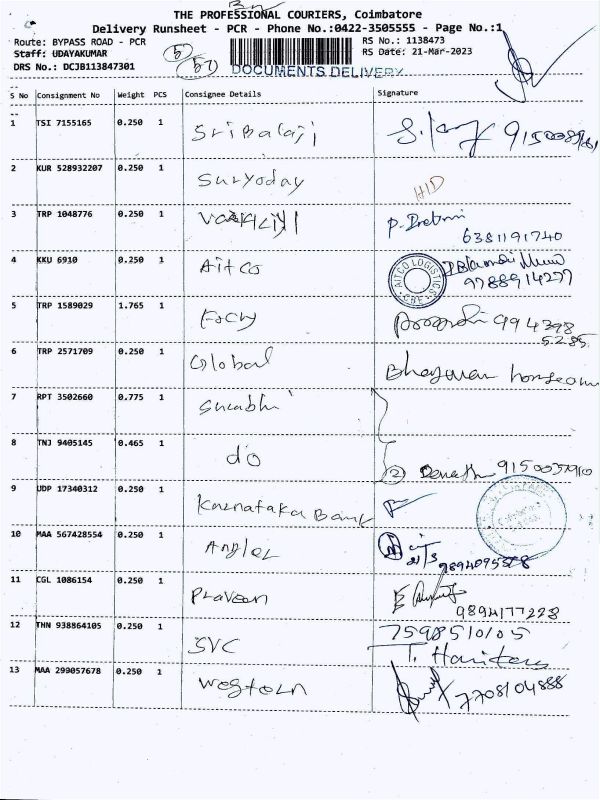 THE PROFESSIONAL COURIERS, Coimbatore
Delivery Runsheet - PCR - Phone No.:0422-3505555 - Page No.:1
Route: BYPASS ROAD - PCR
RS No.: 1138473
Staff: UDAYAKUMAR
RS Date: 21-Mar-2023
DRS No.: DCJB113847301
DOCUMENTS DELIVERY
S No Consignment No Weight PCS Consignee Details Signature
1 TSI 7155165 0.250 1 Sri Balaji
2 KUR 528932207 0.250 1 Suryoday HID
3 TRP 1048776 0.250 1
6381191740
4 KKU 6910 0.250 1 Aitco AITCO LOGISTICS CBE
9788914277
5 TRP 1589029 1.765 1 994398
5285
6 TRP 2571709 0.250 1 Global
7 RPT 3502660 0.775 1 Surabhi
8 TNJ 9405145 0.465 1 do 2
9 UDP 17340312 0.250 1 Karnataka Bank
10 MAA 567428554 0.250 1 Angler
11 CGL 1086154 0.250 1 Praveen
9894177228
12 THN 938864105 0.250 1 SVC 7598510105
13 MAA 299057678 0.250 1 Western 7708104888